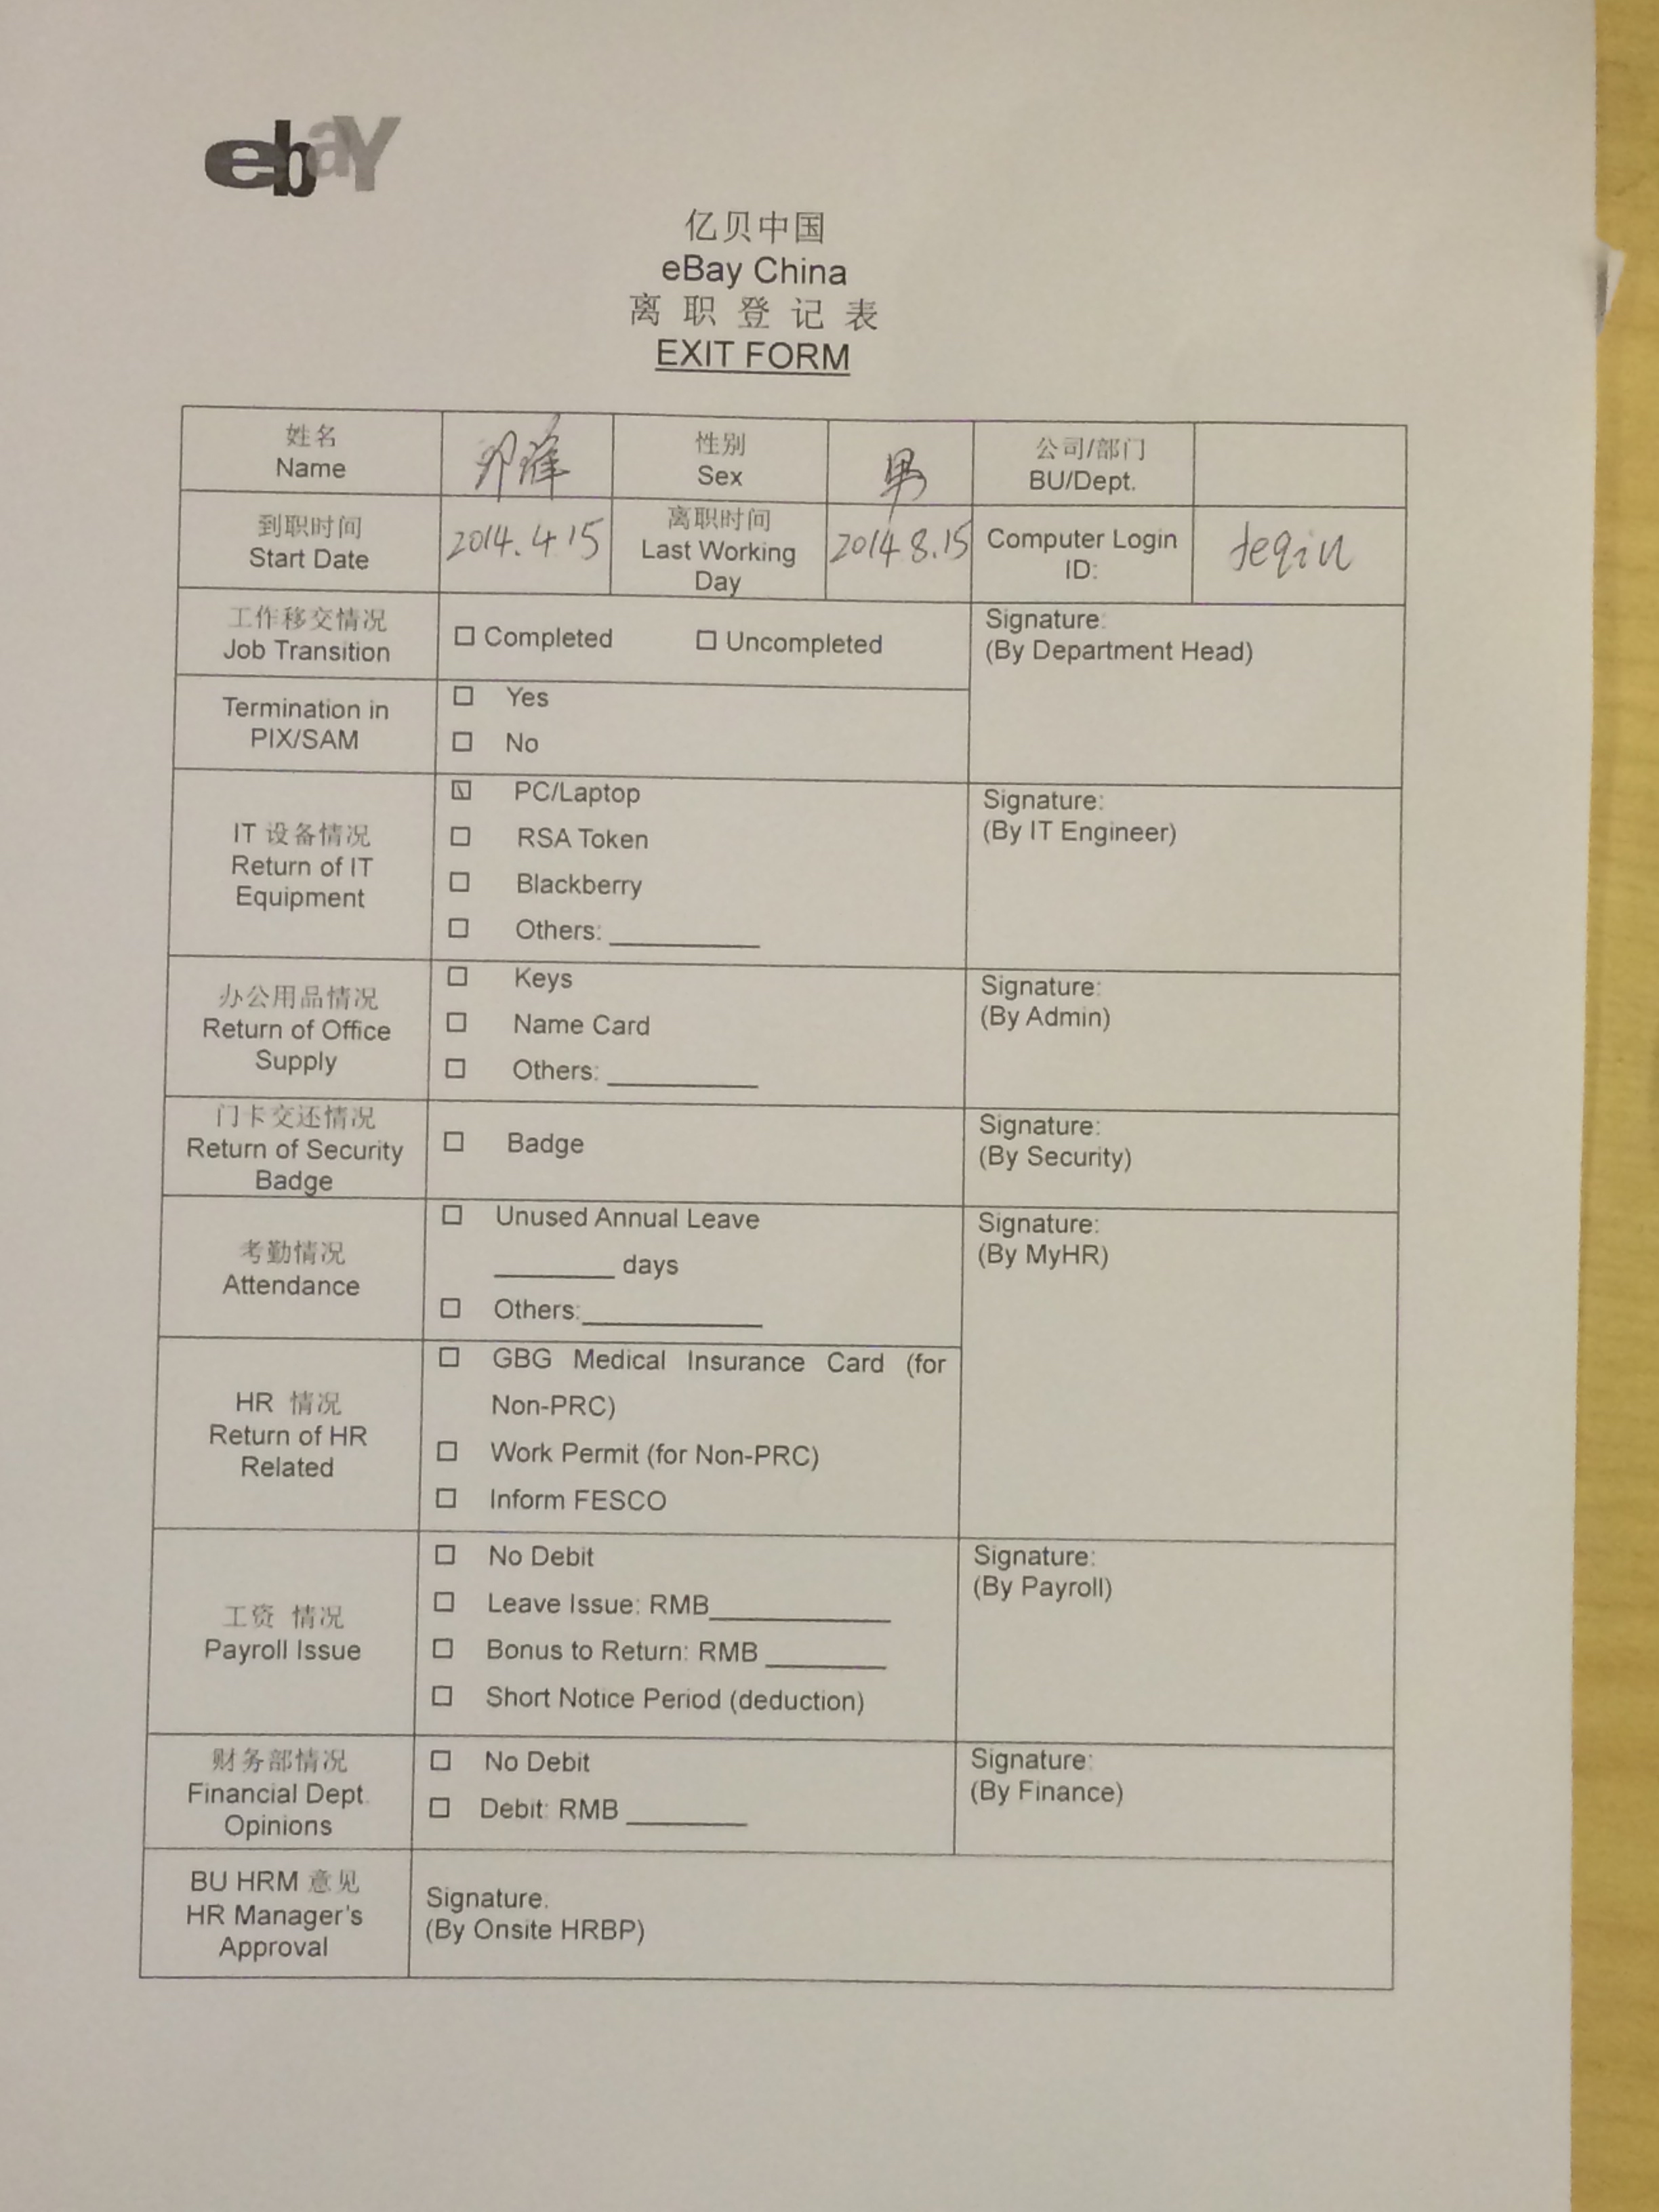 ebaY
亿贝中国
eBay China
离 职 登 记 表
EXIT FORM
姓名
Name
性别
Sex
男
公司/部门
BU/Dept.
到职时间
Start Date
2014.4.15
离职时间
Last Working
Day
2014.8.15
Computer Login
ID:
工作移交情况
Job Transition
Completed
Uncompleted
Signature:
(By Department Head)
Termination in
PIX/SAM
Yes
No
IT 设备情况
Return of IT
Equipment
PC/Laptop
RSA Token
Blackberry
Others:
Signature:
(By IT Engineer)
办公用品情况
Return of Office
Supply
Keys
Name Card
Others:
Signature:
(By Admin)
门卡交还情况
Return of Security
Badge
Badge
Signature:
(By Security)
考勤情况
Attendance
Unused Annual Leave
days
Others:
Signature:
(By MyHR)
HR 情况
Return of HR
Related
GBG Medical Insurance Card (for
Non-PRC)
Work Permit (for Non-PRC)
Inform FESCO
工资 情况
Payroll Issue
No Debit
Leave Issue: RMB
Bonus to Return: RMB
Short Notice Period (deduction)
Signature:
(By Payroll)
财务部情况
Financial Dept.
Opinions
No Debit
Debit: RMB
Signature:
(By Finance)
BU HRM 意见
HR Manager's
Approval
Signature:
(By Onsite HRBP)